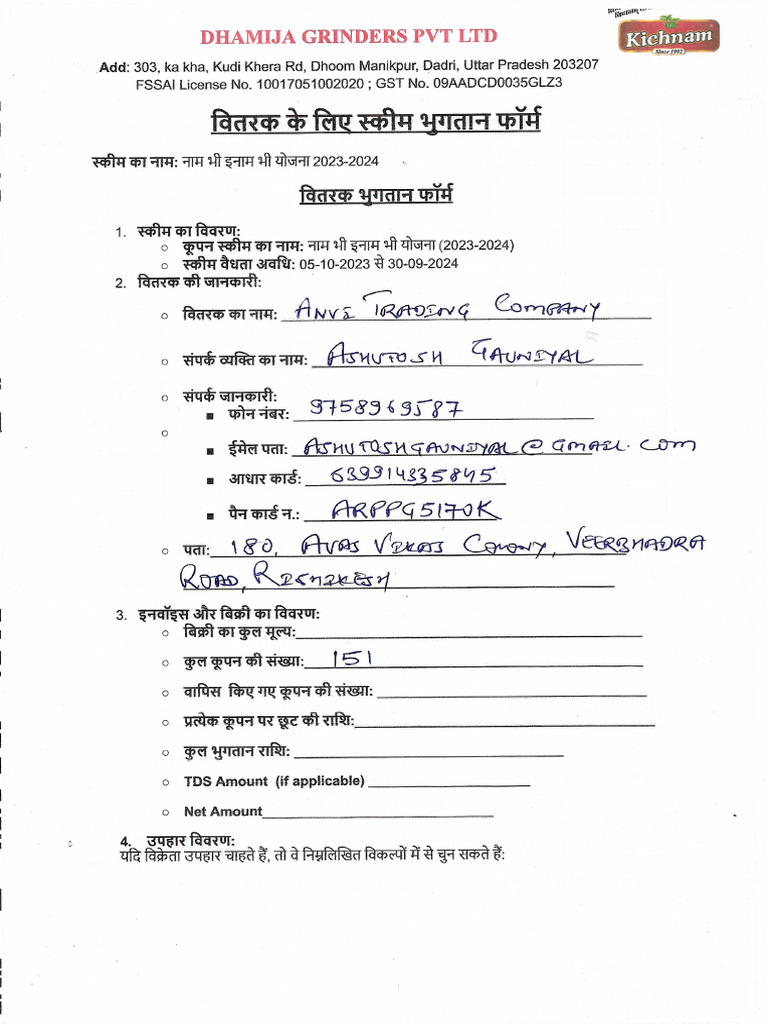 DHAMIJA GRINDERS PVT LTD
Kichnam
Since 1992
Add: 303, ka kha, Kudi Khera Rd, Dhoom Manikpur, Dadri, Uttar Pradesh 203207
FSSAI License No. 10017051002020 ; GST No. 09AADCD0035GLZ3
वितरक के लिए स्कीम भुगतान फॉर्म
स्कीम का नाम: नाम भी इनाम भी योजना 2023-2024
वितरक भुगतान फॉर्म
1. स्कीम का विवरण:
○ कूपन स्कीम का नाम: नाम भी इनाम भी योजना (2023-2024)
○ स्कीम वैधता अवधि: 05-10-2023 से 30-09-2024
2. वितरक की जानकारी:
○ वितरक का नाम: ANVI TRADING COMPANY
○ संपर्क व्यक्ति का नाम: ASHUTOSH GAUNIYAL
○ संपर्क जानकारी:
■ फोन नंबर: 9758969587
○
■ ईमेल पता: ASHUTOSHGAUNIYAL@GMAIL.COM
■ आधार कार्ड: 639914335845
■ पैन कार्ड न.: ARPPG5170K
○ पता: 180, AVAS VIKAS COLONY, VEERBHADRA
ROAD, RISHIKESH
3. इनवॉइस और बिक्री का विवरण:
○ बिक्री का कुल मूल्य:
○ कुल कूपन की संख्या: 151
○ वापिस किए गए कूपन की संख्या:
○ प्रत्येक कूपन पर छूट की राशि:
○ कुल भुगतान राशि:
○ TDS Amount (if applicable)
○ Net Amount
4. उपहार विवरण:
यदि विक्रेता उपहार चाहते हैं, तो वे निम्नलिखित विकल्पों में से चुन सकते हैं: